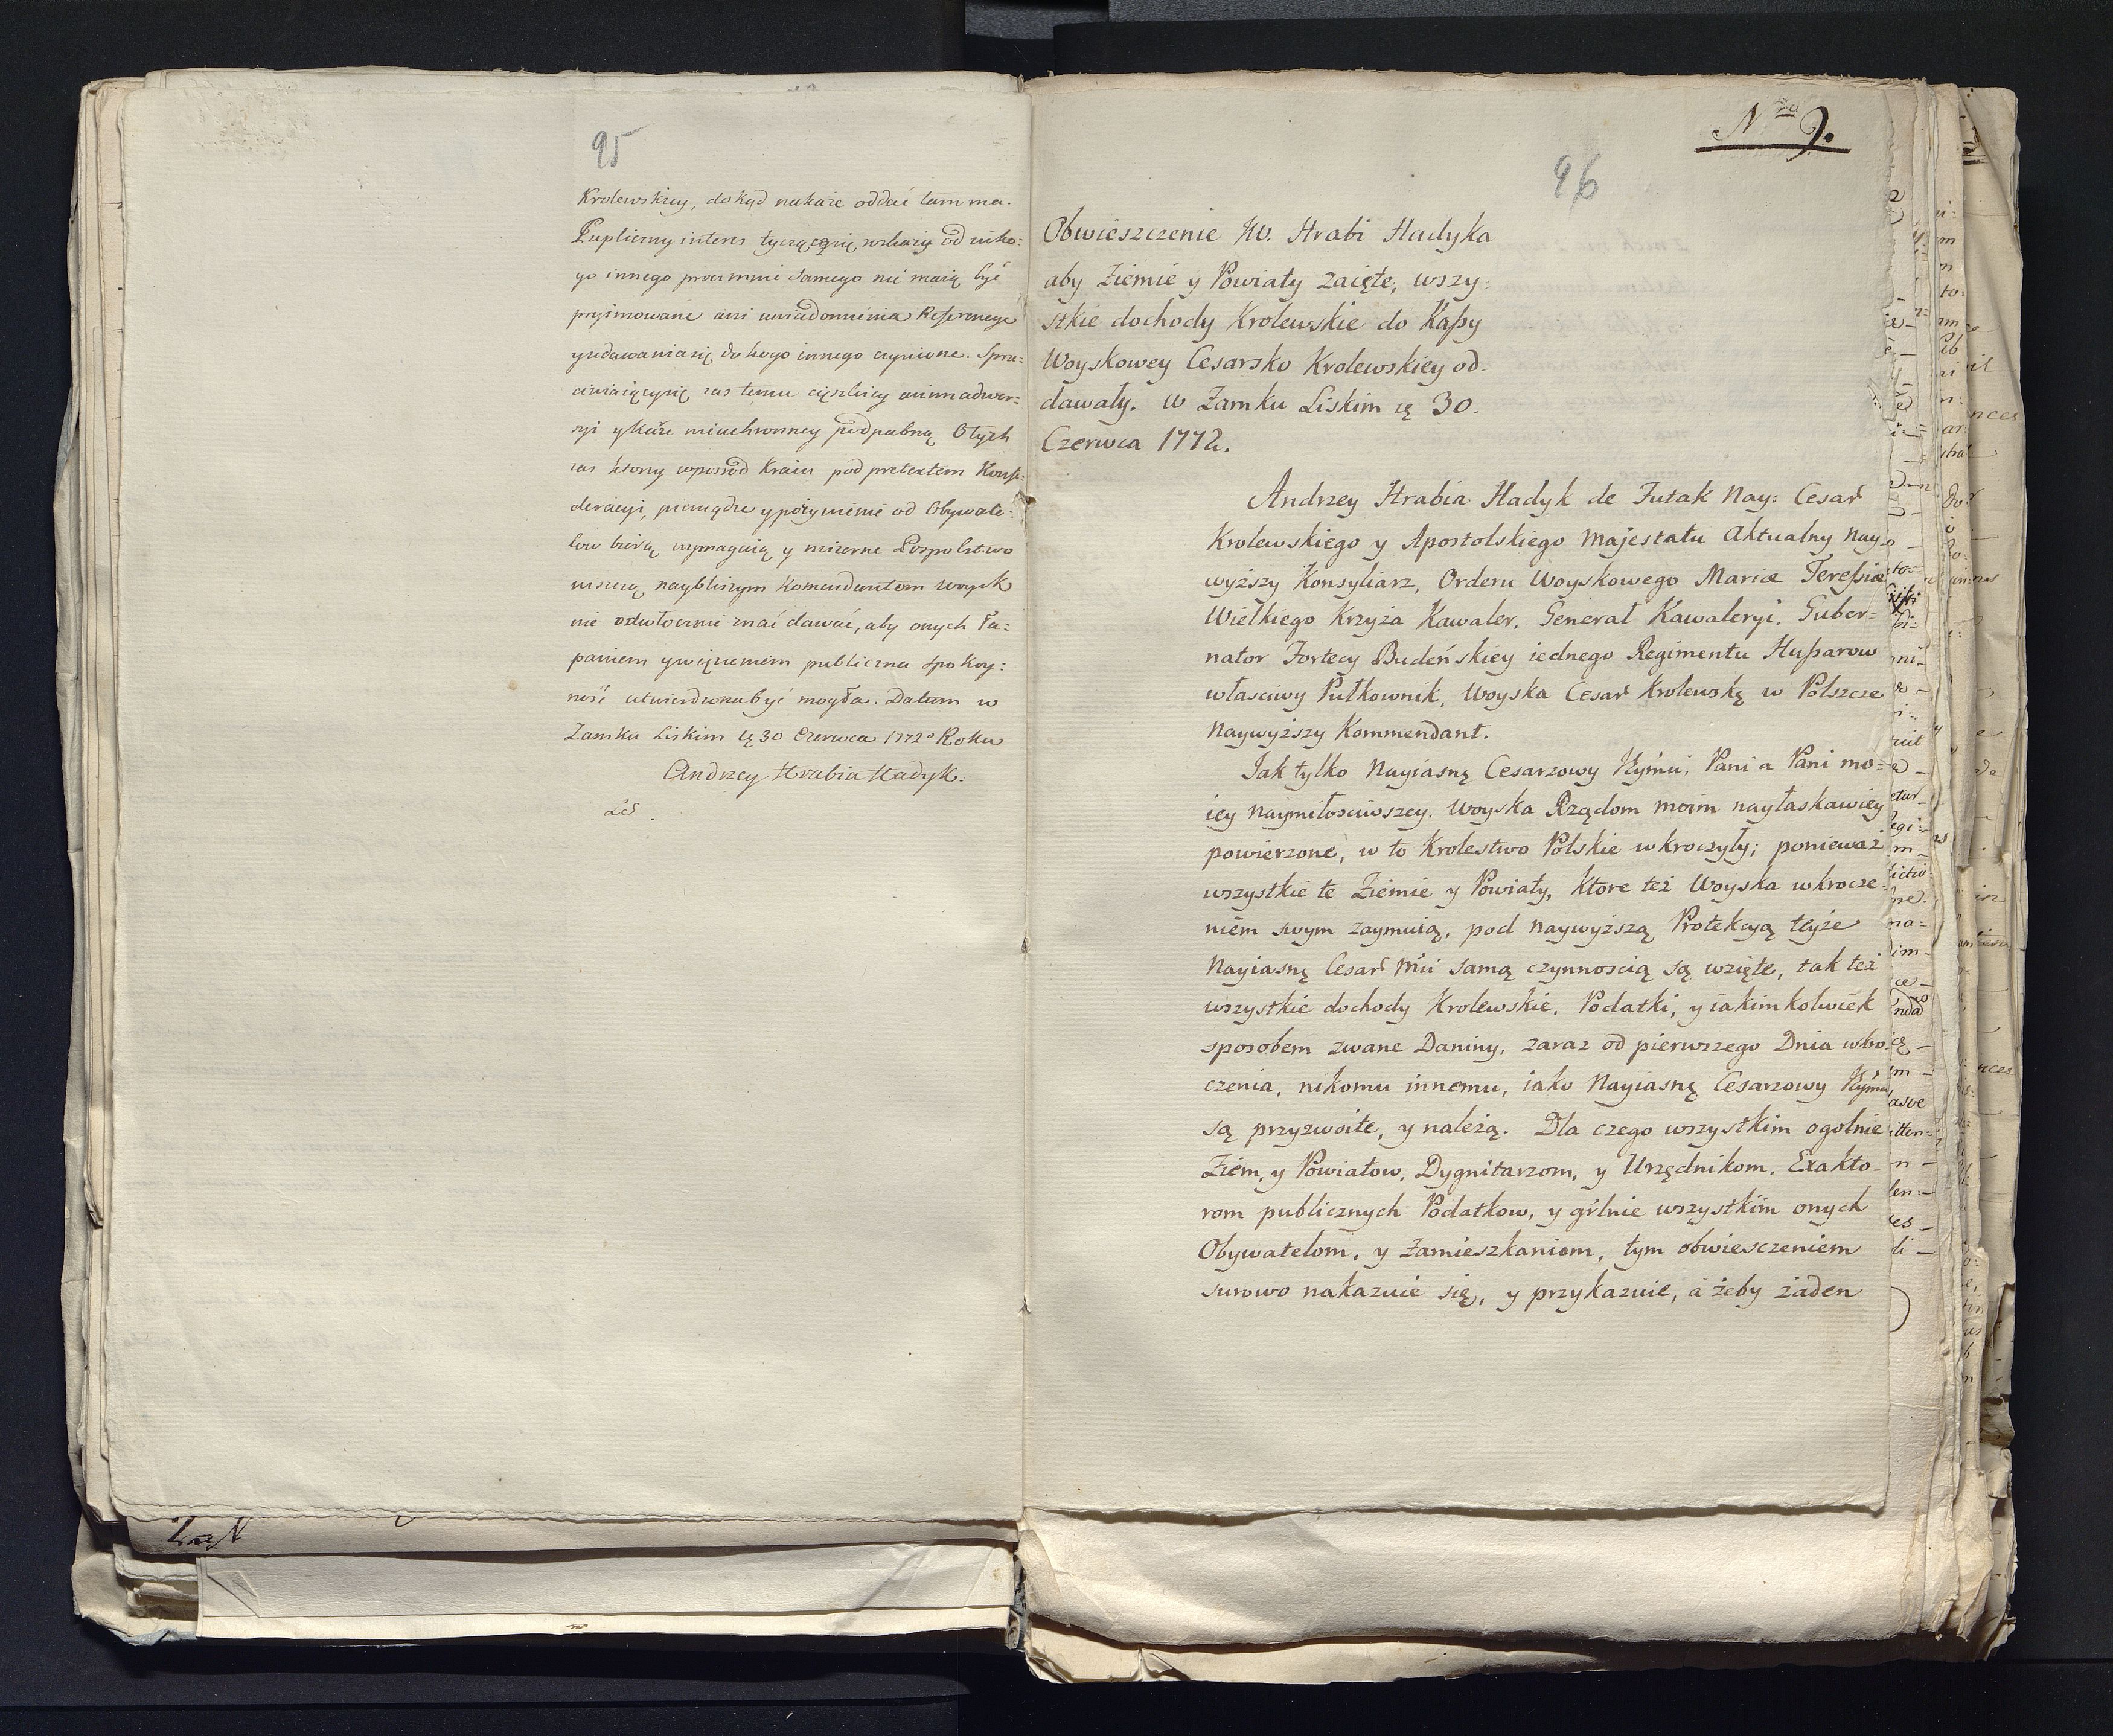 95
Krolewskiey, dokąd nakaże oddać tam ma.
Pupliczny interes tyczący się wskazy od niko:
go innego procz mnie Samego nie maią być
przyimowane ani uwiadomienia
y udawania się do kogo innego czynione. Sprze:
ciwiaiący się zas temu cięszkiey animadwer:
syi y karze nieuchronney podpadną O tych
zas ktorzy wposrod Kraiu pod pretextem Konfe:
deracyi, pieniądze y pożywienie od Obywate:
low biorą wymagaią y mizerne Pospolstwo
niszczą, naybliszym Komendantom woysk
nie odwłocznie znać dawać, aby onych ła:
paniem y więzieniem publiczna Spokoy:
ność utwierdzona być mogła. Datum w
Zamku Liskim ię 30 Czerwca 1772º Roku
Andrzey Hrabia Hadyk.
LS.
Nro 9.
96
Obwieszczenie JW. Hrabi Hadyka
aby Ziemie y Powiaty zaięte, wszy:
stkie dochody Krolewskie do Kaßy
Woyskowey Cesarsko Krolewskiey od:
dawały. w Zamku Liskim ię 30.
Czerwca 1772.
Andrzey Hrabia Hadyk de Futak Nay: Cesar
Krolewskiego y Apostolskiego Majestatu Aktualny Nay
wyższy Konsyliarz, Orderu Woyskowego Mariæ Tereßiæ
Wielkiego Krzyża Kawaler, Generał Kawaleryi, Guber=
nator Fortecy Budeńskiey iednego Regimentu Hußarow
własciwy Pułkownik, Woyska Cesar Krolewskę w Polszcze
Naywyższy Kommendant.
Jak tylko Nayiasnę Cesarzowy Rzymii, Pani a Pani mo=
iey naymiłosciwszey, Woyska Rządom moim nayłaskawiey
powierzone, w to Krolestwo Polskie wkroczyły; ponieważ
wszystkie te Ziemie y Powiaty, Ktore też Woyska wkrocze=
niem swym zaymuią, pod naywyższą Protekcyą teyże
Nayiasnę Cesar Mći samą czynnoscią są wzięte, tak też
wszystkie dochody Krolewskie, Podatki, y iakimkolwiek
sposobem zwane Daniny, zaraz od pierwszego Dnia wkro
czenia, nikomu innemu, iako Nayiasnę Cesarzowy Rzymii
są przyzwoite, y należą. Dla czego wszystkim ogolnie
Ziem, y Powiatow, Dygnitarzom, y Urzędnikom, Exakto=
rom publicznych Podatkow, y grlnie wszystkim onych
Obywatelom, y Zamieszkaniom, tym obwiesczeniem
surowo nakazuie się, y przykazuie, a żeby żaden